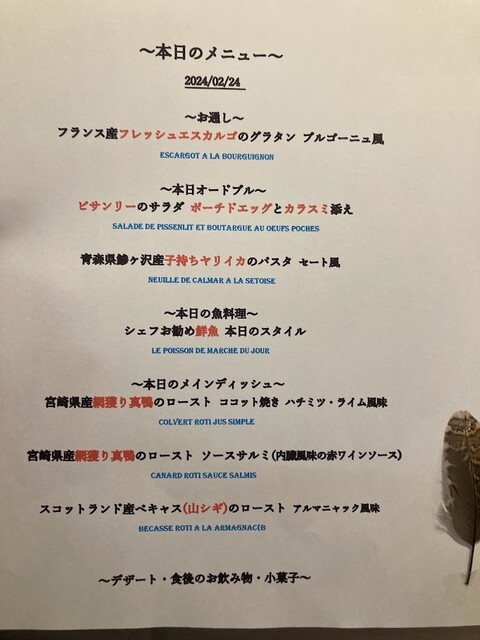 ～本日のメニュー～
2024/02/24
～お通し～
フランス産フレッシュエスカルゴのグラタン ブルゴーニュ風
ESCARGOT A LA BOURGUIGNON
～本日オードブル～
ピサンリーのサラダ ポーチドエッグとカラスミ添え
SALADE DE PISSENLIT ET BOUTARGUE AU OEUFS POCHES
青森県鰺ヶ沢産子持ちヤリイカのパスタ セート風
NEUILLE DE CALMAR A LA SETOISE
～本日の魚料理～
シェフお勧め鮮魚 本日のスタイル
LE POISSON DE MARCHE DU JOUR
～本日のメインディッシュ～
宮崎県産網獲り真鴨のロースト ココット焼き ハチミツ・ライム風味
COLVERT ROTI JUS SIMPLE
宮崎県産網獲り真鴨のロースト ソースサルミ(内臓風味の赤ワインソース)
CANARD ROTI SAUCE SALMIS
スコットランド産ベキャス(山シギ)のロースト アルマニャック風味
BECASSE ROTI A LA ARMAGNAC(B
～デザート・食後のお飲み物・小菓子～